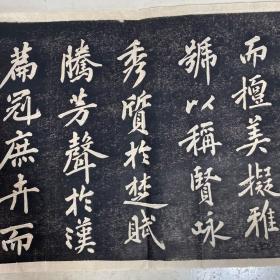 而擅美擬雅
號以稱賢詠
秀質於楚賦
騰芳聲於漢
篇冠庶卉而